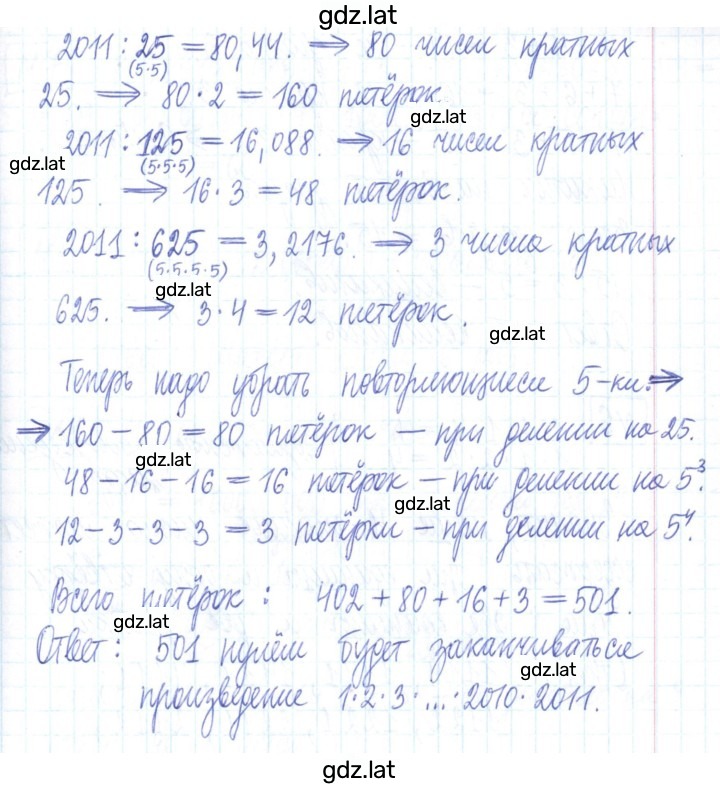 gdz.lat
2011 : 25 = 80,44. ⟹ 80 чисел кратных
(5·5)
25. ⟹ 80 · 2 = 160 пятёрок.
gdz.lat
2011 : 125 = 16,088. ⟹ 16 чисел кратных
gdz.lat
(5·5·5)
125. ⟹ 16 · 3 = 48 пятёрок.
2011 : 625 = 3,2176. ⟹ 3 числа кратных
(5·5·5·5)
gdz.lat
625. ⟹ 3 · 4 = 12 пятёрок.
gdz.lat
Теперь надо убрать повторяющиеся 5-ки. ⟹
⟹ 160 – 80 = 80 пятёрок — при делении на 25.
gdz.lat
48 – 16 – 16 = 16 пятёрок – при делении на 5³.
gdz.lat
12 – 3 – 3 – 3 = 3 пятёрки – при делении на 5⁴.
Всего пятёрок : 402 + 80 + 16 + 3 = 501.
gdz.lat
Ответ: 501 нулём будет заканчиваться
gdz.lat
произведение 1·2·3·...·2010·2011.
gdz.lat